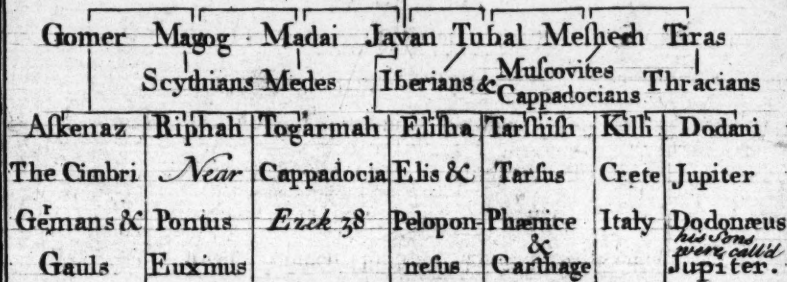 Gomer Magog Madai Javan Tubal Meſhech Tiras
Scythians Medes Iberians & Muſcovites Cappadocians Thracians
Aſkenaz Riphah Togarmah Eliſha Tarſhiſh Kitti Dodani
The Cimbri Near Cappadocia Elis & Tarſus Crete Jupiter
Germans & Pontus Ezek 38 Pelopon- Phænice Italy Dodonæus
Gauls Euxinus neſus & Carthage his Sons were call'd Jupiter.